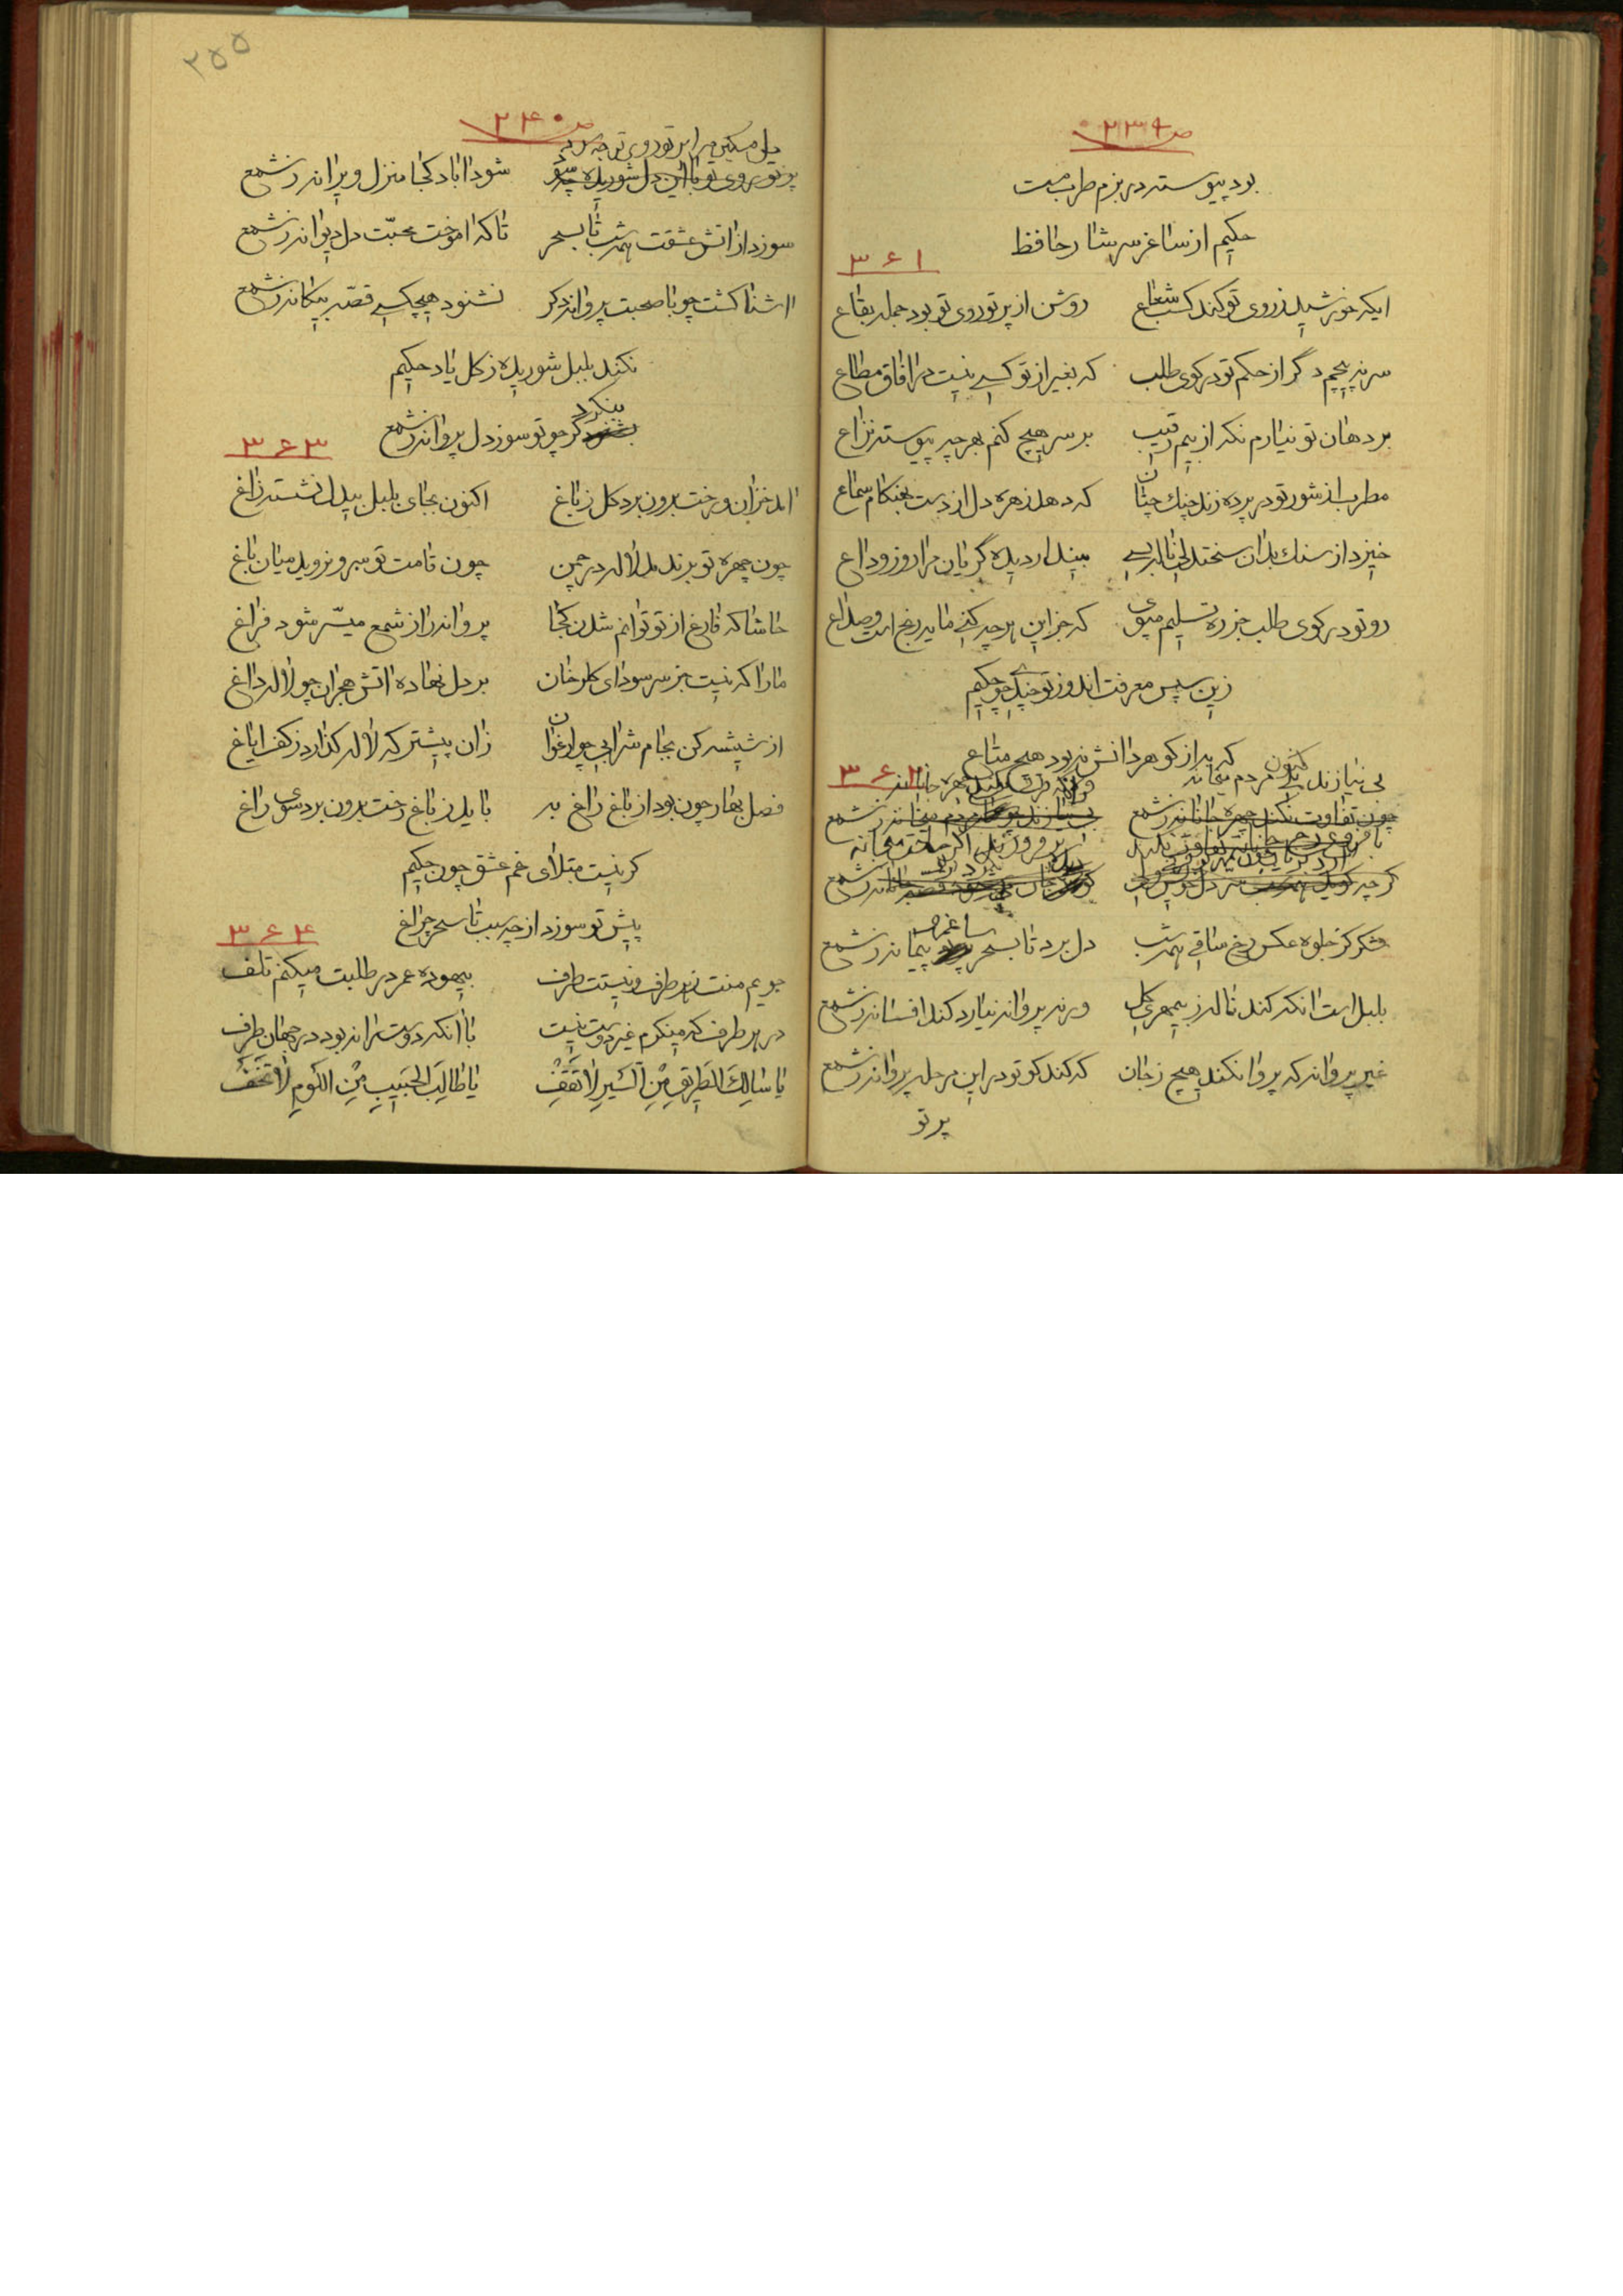 ص ۲۳۹
بود پیوسته در بزم طرب مست
حکیم از ساغر سرشار حافظ
۳۶۱
ایکه خورشید ز روی تو کند کسب شعاع روشن از پرتو روی تو بود جمله بقاع
سر نه پیچم دگر از حکم تو در کوی طلب که بغیر از تو کسی نیست در آفاق مطاع
بر دهان تو نیارم نکه از بیم رقیب بر سر هیچ کنم بهر چه پیوسته نزاع
مطرب از شور تو در پرده زند چنک چنان که دهد زهره دل از دست بهنکام سماع
خیزد از سنك بدان سختدلی ناله بسی بیند ار دیده گریان مرا روز وداع
رو تو در کوی طلب جز ره تسلیم مپوی که جز این هر چه کنی مایه رنج است و صداع
زین سپس معرفت اندوز تو چندی چو حکیم
که به از کوهر دانش نبود هیچ متاع
۳۶۲
کنون
بی نیازند مردم میخانه
چون تفاوت نکند چهره جانانه ز شمع بی نیازند مردم میخانه ز شمع
ساغر
فکر کز جلوه عکس رخ ساقی همه شب دل برد تا بسحر پیمانه ز شمع
بلبل است آنکه کند ناله ز بیمهری کل ورنه پروانه نیارد کند افسانه ز شمع
غیر پروانه که پروا نکند هیچ ز جان که کند کو تو در این مرحله پروانه ز شمع
پرتو
۲۵۵
ص ۲۴۰
دل مسکین مرا پرتو روی تو چه سود
پرتو روی تو با این دل شوریده چه شود آباد کجا منزل ویرانه ز شمع
سوزد از آتش عشقت همه شب تا بسحر تا که آموخت محبّت دل دیوانه ز شمع
آشنا کشت چو با صحبت پروانه دکر نشنود هیچکسی قصّه بیکانه ز شمع
نکند بلبل شوریده ز کل یاد حکیم
بنکرد
بشنود گر چو تو سوز دل پروانه ز شمع
۳۶۳
آمد خزان و رخت برون برد کل ز باغ اکنون بجای بلبل بیدل نشسته زاغ
چون چهره تو بر ندمد لاله در چمن چون قامت تو سرو نروید میان باغ
حاشا که فارغ از تو توانم شدن کجا پروانه را ز شمع میسّر شود فراغ
ما را که نیست جز سر سودای کلرخان بر دل نهاده آتش هجران چو لاله داغ
از شیشه کن بجام شرابی چو ارغوان زان پیشتر که لاله کذارد ز کف ایاغ
فصل بهار چون بود از باغ راغ به باید ز باغ رخت برون برد سوی راغ
کر نیست مبتلای غم عشق چون حکیم
پیش تو سوزد از چه سبب تا سحر چراغ
۳۶۴
جویم منت ز هر طرف و نیستت طرف بیهوده عمر در طلبت میکنم تلف
در هر طرف که مینکرم غیر دوست نیست با آنکه دوست را نه بود در جهان طرف
یا سالِكَ الطَریقِ مِنَ السَیرِ لا تَقِفْ یا طالِبَ الحَبیبِ مِنَ اللَومِ لا تَخَفْ